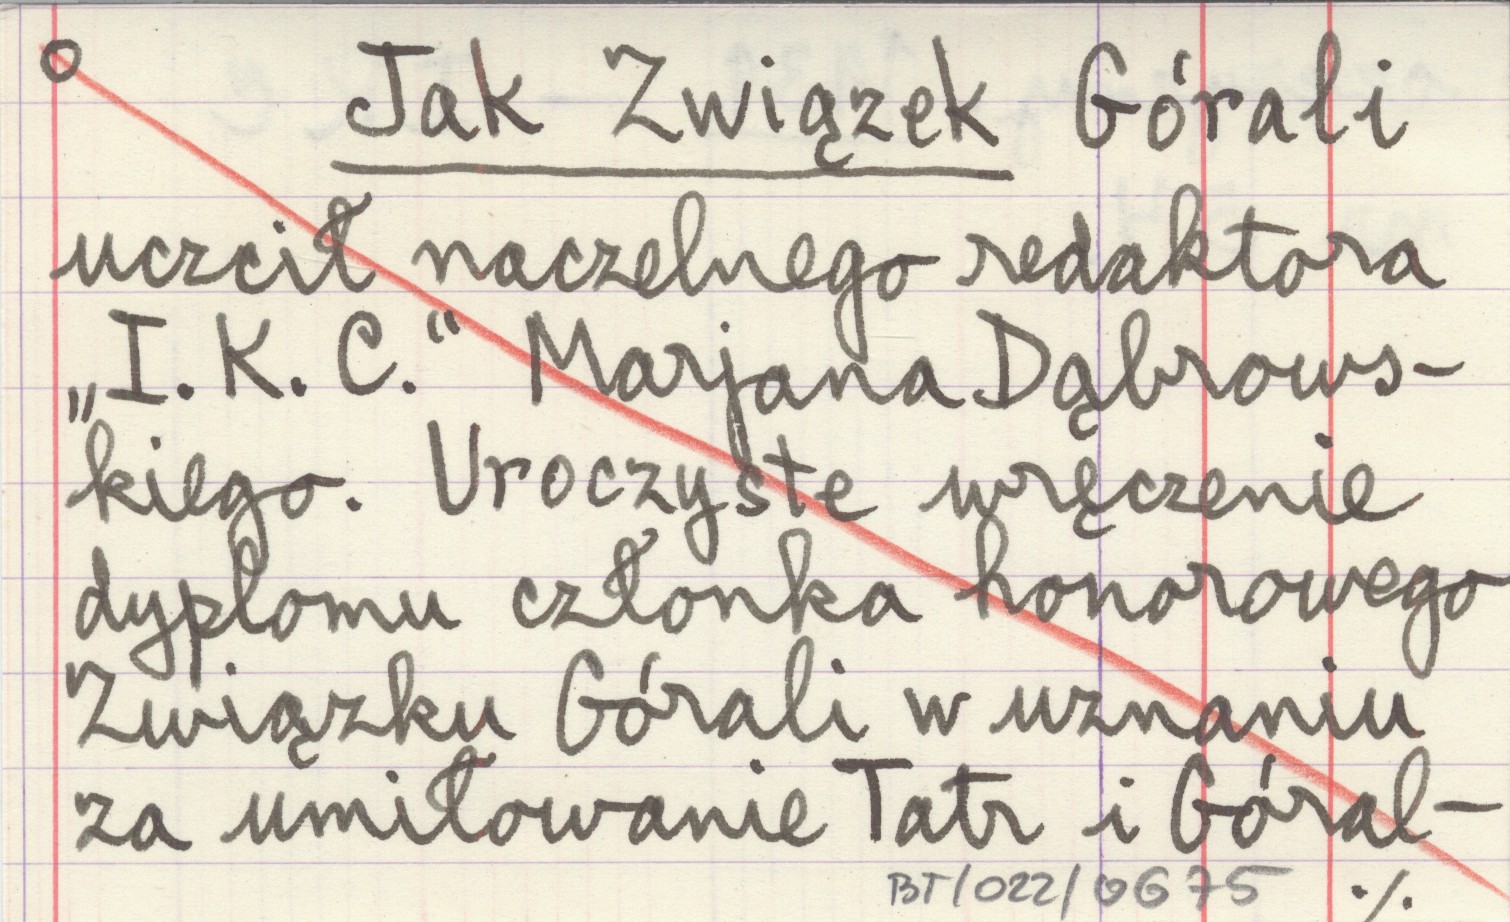 Jak Związek Górali
uczcił naczelnego redaktora
„I. K. C.“ Marjana Dąbrows-
kiego. Uroczyste wręczenie
dyplomu członka honorowego
Związku Górali w uznaniu
za umiłowanie Tatr i Góral-
BT/022/0675 ./.